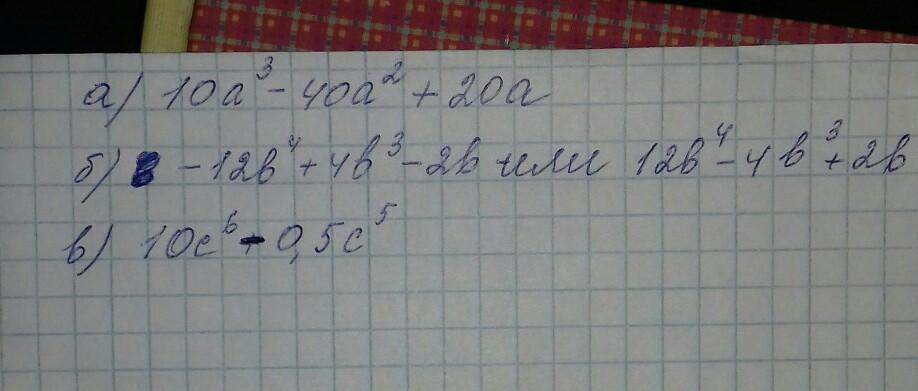 а) 10a³ - 40a² + 20a
б) - 12b⁴ + 4b³ - 2b или 12b⁴ - 4b³ + 2b
в) 10c⁶ - 0,5c⁵